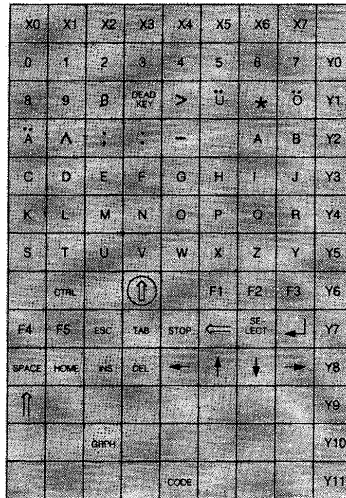 X0 X1 X2 X3 X4 X5 X6 X7
0 1 2 3 4 5 6 7 Y0
8 9 β DEAD KEY > Ü * Ö Y1
Ä ∧ ; : − A B Y2
C D E F G H I J Y3
K L M N O P Q R Y4
S T U V W X Z Y Y5
CTRL ⇧ F1 F2 F3 Y6
F4 F5 ESC TAB STOP ⇐ SELECT ↵ Y7
SPACE HOME INS DEL ← ↑ ↓ → Y8
⇑ Y9
GRPH Y10
CODE Y11